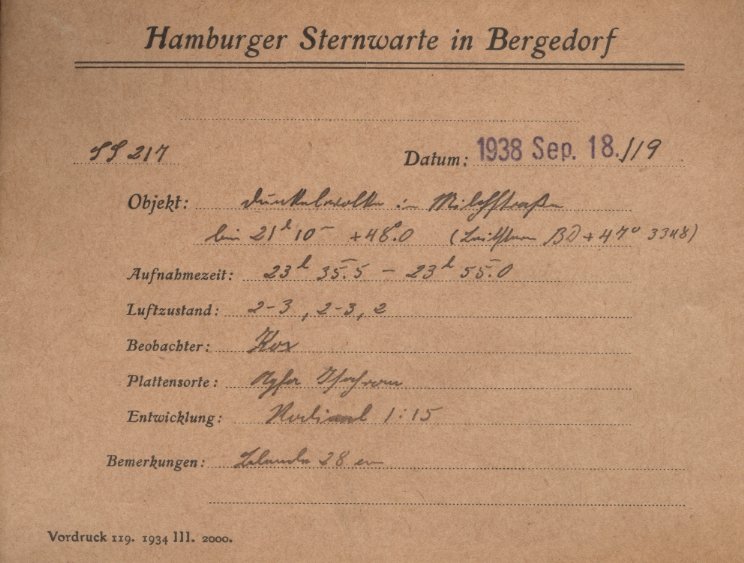 Hamburger Sternwarte in Bergedorf
SS 217 Datum: 1938 Sep. 18./19
Objekt: Dunkelwolke in Milchstraße
bei 21h 10m +48°.0 (Leitstern BD+47° 3348)
Aufnahmezeit: 23h 35m.5 – 23h 55m.0
Luftzustand: 2-3, 2-3, 2
Beobachter: Kox
Plattensorte: Agfa Isochrom
Entwicklung: Rodinal 1:15
Bemerkungen: Blende 28 cm
Vordruck 119. 1934 III. 2000.